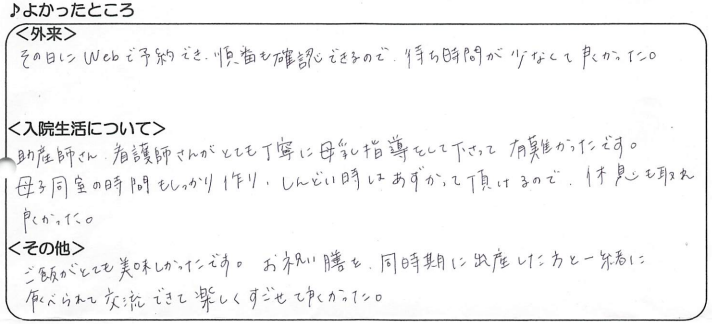 ♪よかったところ
<外来>
その日にWebで予約でき、順番も確認できるので、待ち時間が少なくて良かった。
<入院生活について>
助産師さん、看護師さんがとても丁寧に母乳指導をして下さって有難かったです。
母子同室の時間もしっかり作り、しんどい時はあずかって頂けるので、休息も取れ
良かった。
<その他>
ご飯がとても美味しかったです。お祝い膳を、同時期に出産した方と一緒に
食べられて交流できて楽しくすごせて良かった。